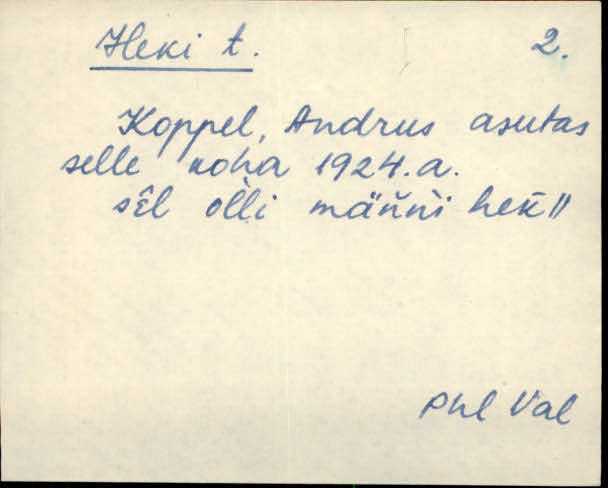 Heki t. 2.
Koppel, Andrus asutas
selle koha 1924.a.
sēl ol̀li mäǹǹi hek̄ ॥
Phl Val